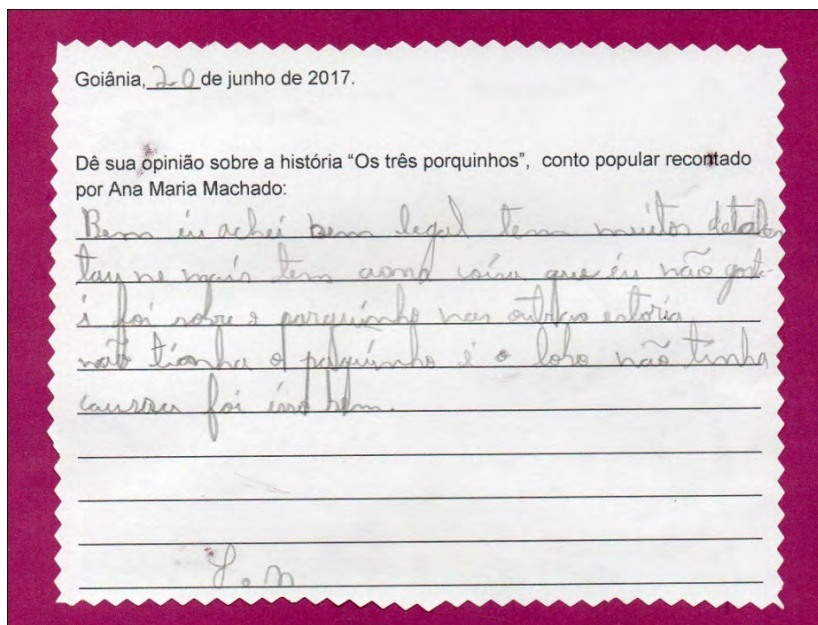 Goiânia, 20 de junho de 2017.
Dê sua opinião sobre a história “Os três porquinhos”, conto popular recontado
por Ana Maria Machado:
Bem eu achei bem legal tem muitos
mais tem coisa que eu não gost-
i foi sobre porquinho nas outras estoria
não o é o lobo não tinha
foi isso bem.